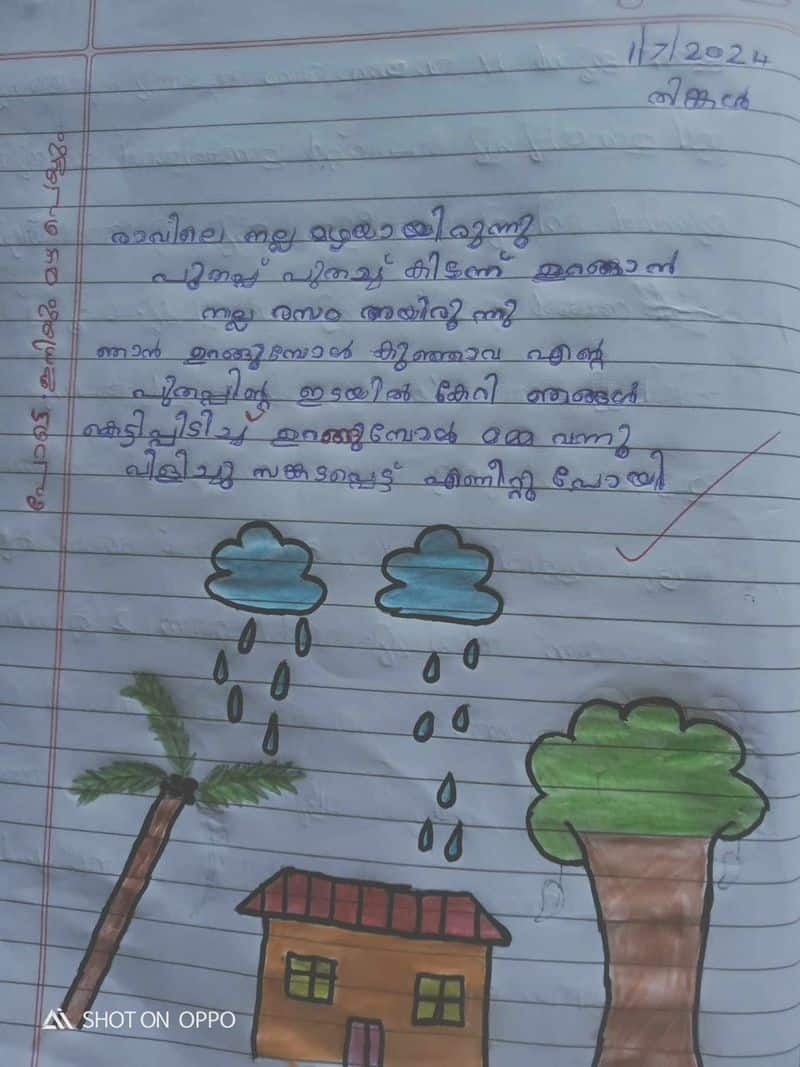 1/7/2024
തിങ്കൾ
രാവിലെ നല്ല മഴയായിരുന്നു
പുതപ്പ് പുതച്ച് കിടന്ന് ഉറങ്ങാൻ
നല്ല രസം അയിരുന്നു
ഞാൻ ഉറങ്ങുമ്പോൾ കുഞ്ഞാവ എന്റെ
പുതപ്പിന്റെ ഇടയിൽ കേറി ഞങ്ങൾ
കെട്ടിപ്പിടിച്ച് ഉറങ്ങുമ്പോൾ മമ്മ വന്നു
വിളിച്ചു സങ്കടപ്പെട്ട് എണീറ്റു പോയി
പോട്ടെ. ഇനിയും മഴ പെയ്യും
SHOT ON OPPO